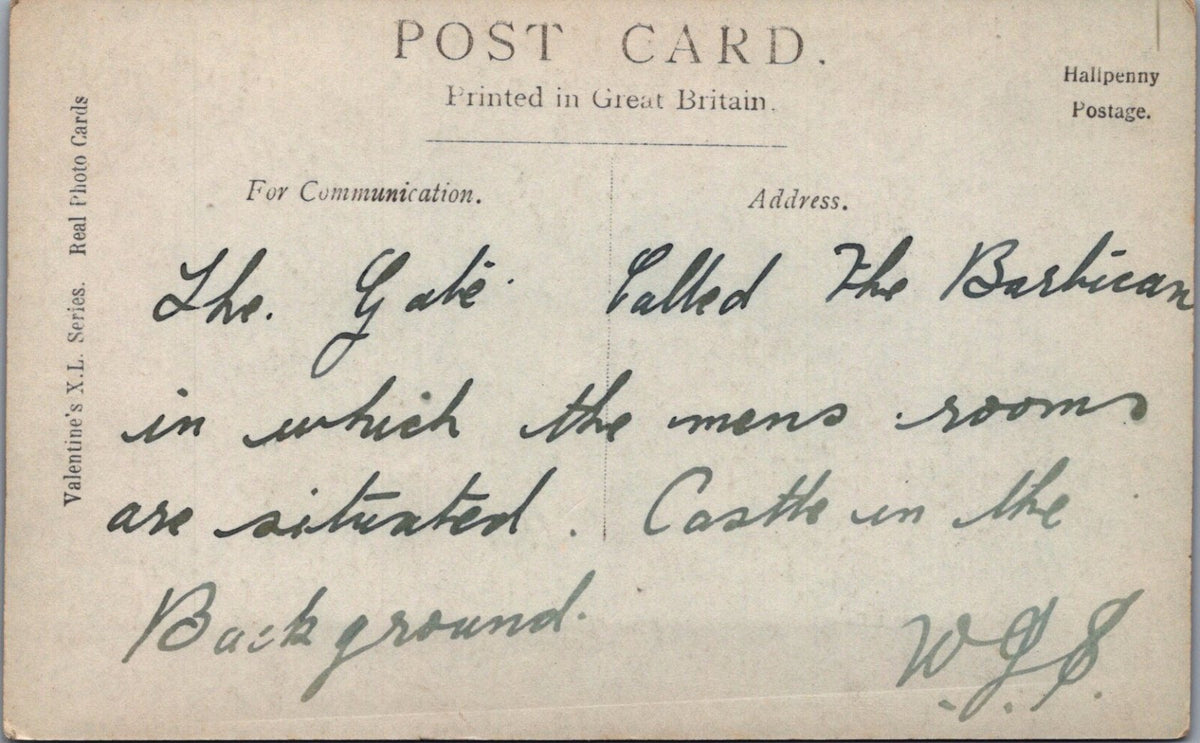 POST CARD.
Printed in Great Britain.
Halfpenny
Postage.
Valentine's X.L. Series. Real Photo Cards
For Communication.
Address.
The. Gate Called The Barbican
in which the mens rooms
are situated. Castle in the
Background.
W.G.S.